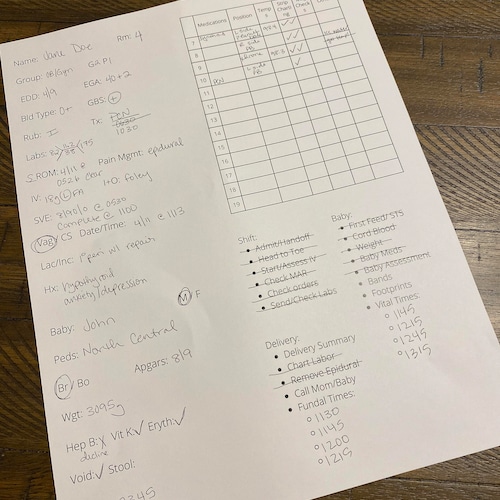 Name: Jane Doe Rm: 4
Group: OB/Gyn G2 P1
EDD: 4/9 EGA: 40+2
Bld Type: O+ GBS: +
Rub: I Tx: PCN
0530
1030
Labs: 175
SROM: 4/11 @ Pain Mgmt: epidural
0526 clear
IV: 18g L FA I+O: Foley
SVE: 8/90/0 @ 0530
Complete @ 1100
Vag / CS Date/Time: 4/11 @ 1113
Lac/Inc: 1° peri w/ repair
Hx: hypothyroid
anxiety/depression
M F
Baby: John
Peds: North Central
Br / Bo Apgars: 8/9
Wgt: 3095g
Hep B: X Vit K: ✓ Eryth: ✓
decline
Void: ✓ Stool:
Medications Position Temp Strip Charting Check
7
8
9
10 PCN
11
12
13
14
15
16
17
18
19
Shift:
• Admit/Handoff
• Head to Toe
• Start/Assess IV
• Check MAR
• Check orders
• Send/Check Labs
Baby:
• First Feed/ STS
• Cord Blood
• Weight
• Baby Meds
• Baby Assessment
• Bands
• Footprints
• Vital Times:
○ 1145
○ 1215
○ 1245
○ 1315
Delivery:
• Delivery Summary
• Chart Labor
• Remove Epidural
• Call Mom/Baby
• Fundal Times:
○ 1130
○ 1145
○ 1200
○ 1215